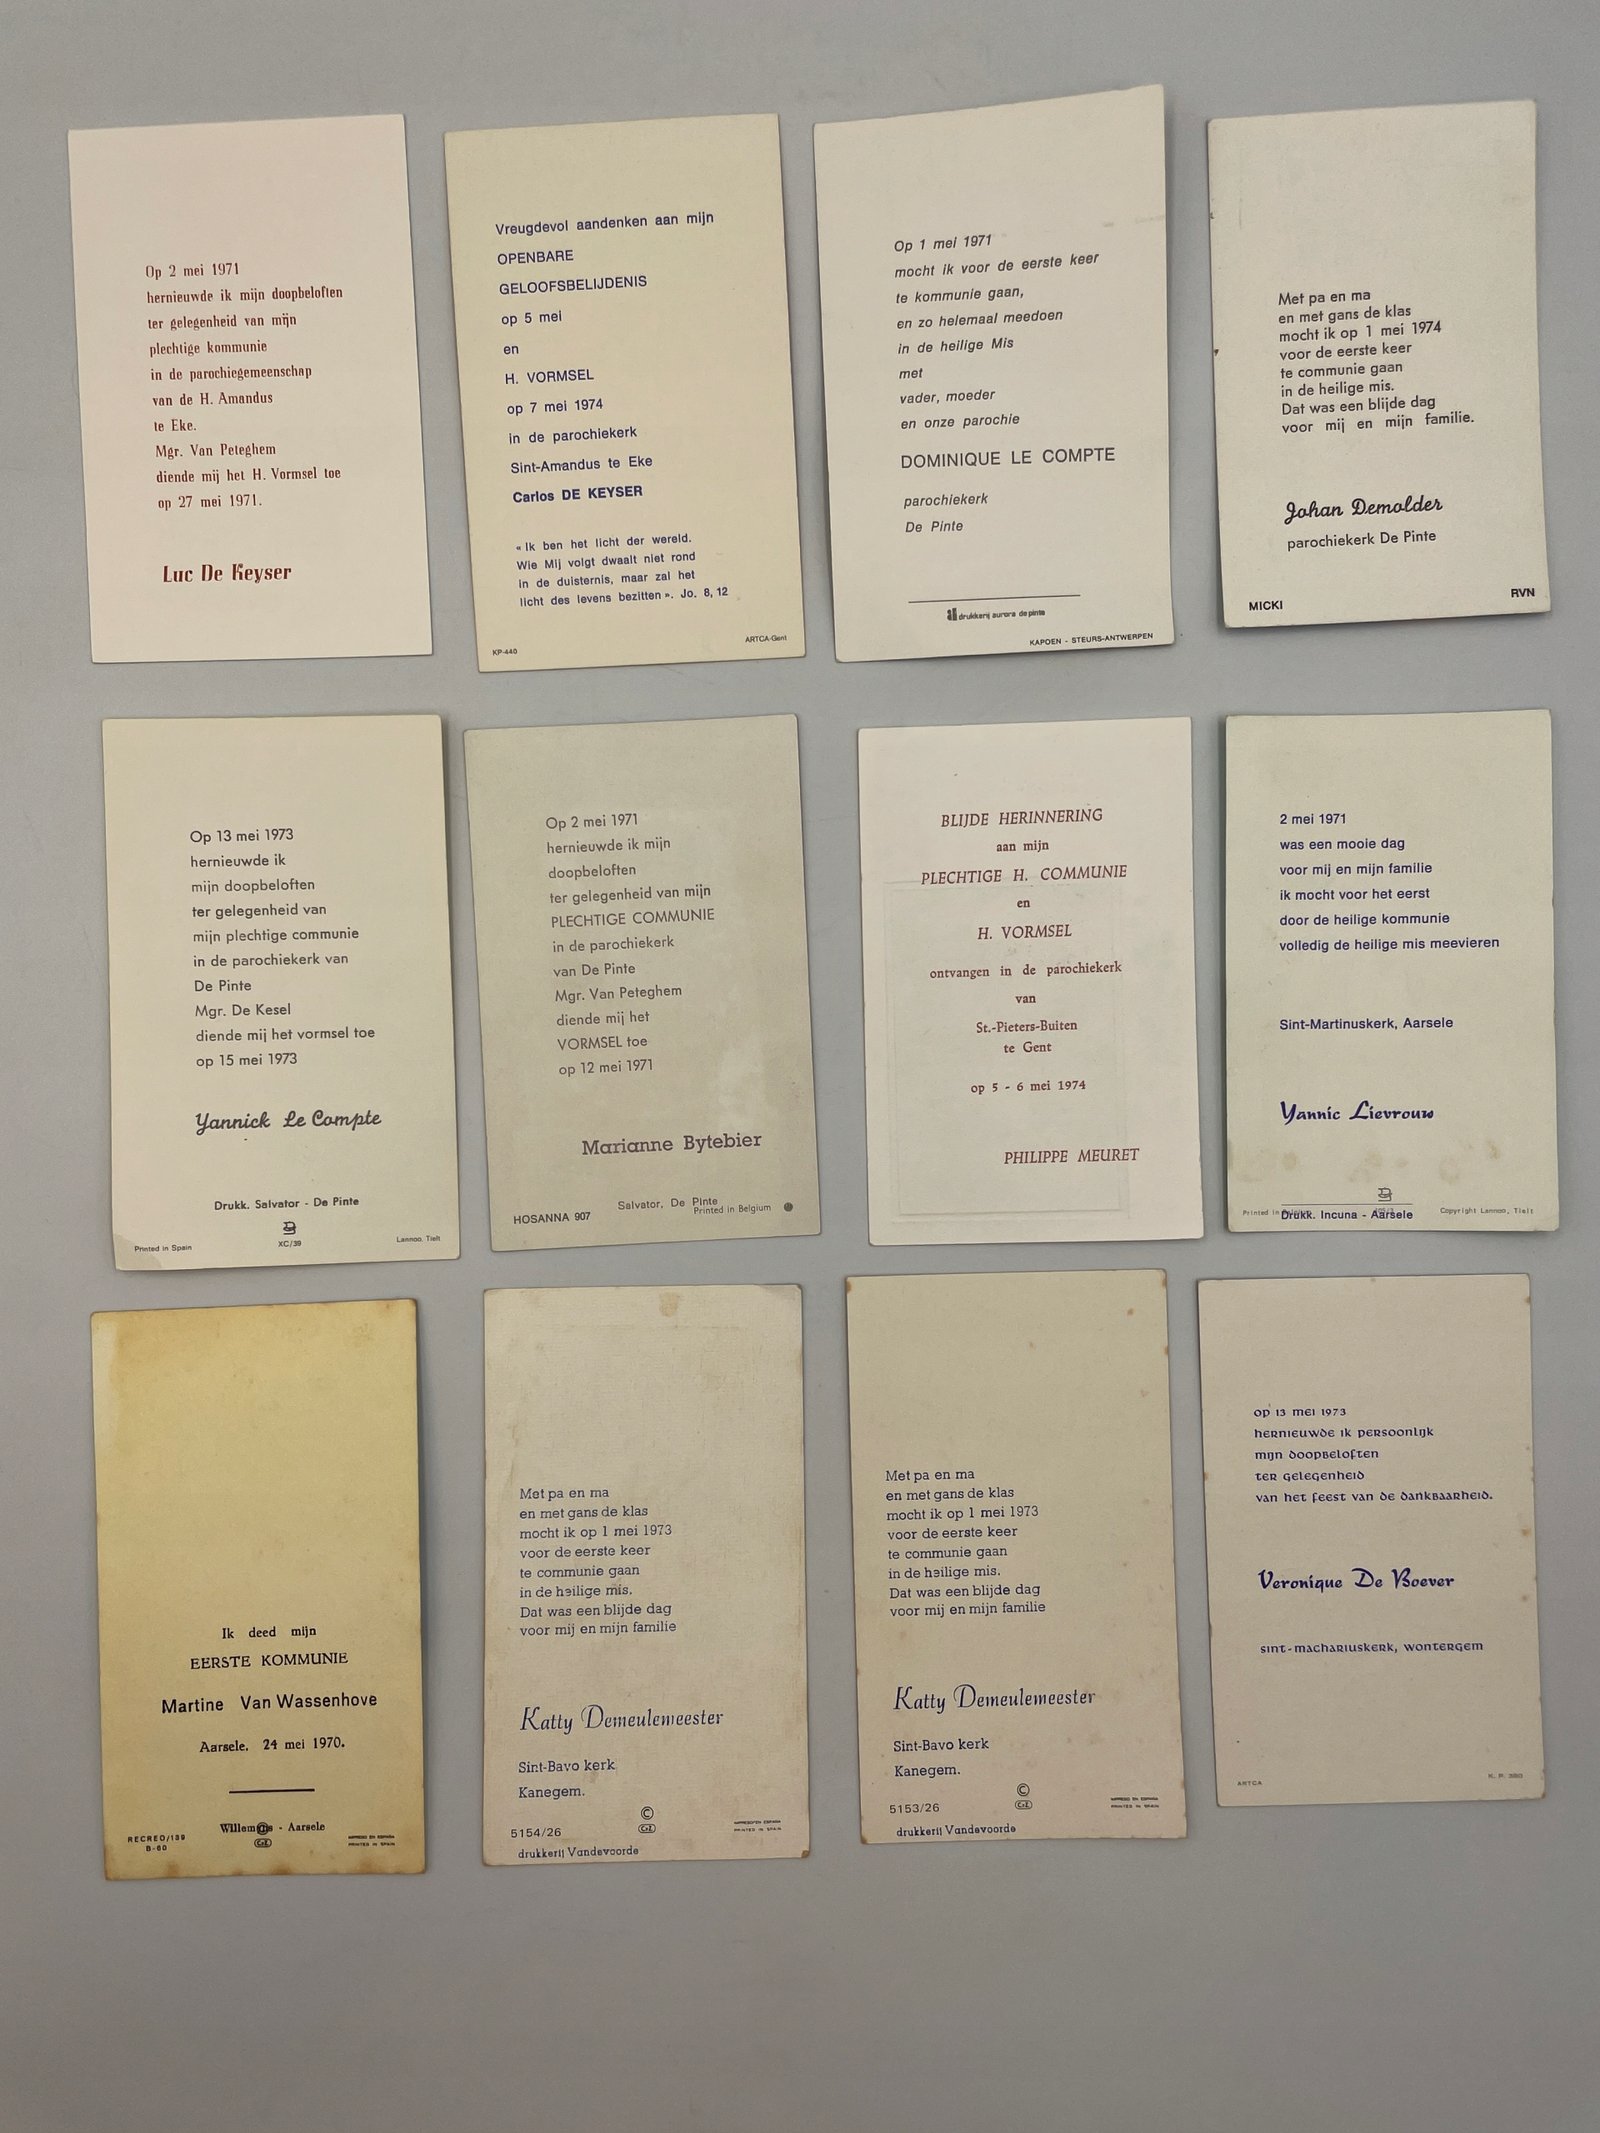 Op 2 mei 1971
hernieuwde ik mijn doopbeloften
ter gelegenheid van mijn
plechtige kommunie
in de parochiegemeenschap
van de H. Amandus
te Eke.
Mgr. Van Peteghem
diende mij het H. Vormsel toe
op 27 mei 1971.
Luc De Keyser
Vreugdevol aandenken aan mijn
OPENBARE
GELOOFSBELIJDENIS
op 5 mei
en
H. VORMSEL
op 7 mei 1974
in de parochiekerk
Sint-Amandus te Eke
Carlos DE KEYSER
« Ik ben het licht der wereld.
Wie Mij volgt dwaalt niet rond
in de duisternis, maar zal het
licht des levens bezitten ». Jo. 8, 12
KP-440 ARTCA-Gent
Op 1 mei 1971
mocht ik voor de eerste keer
te kommunie gaan,
en zo helemaal meedoen
in de heilige Mis
met
vader, moeder
en onze parochie
DOMINIQUE LE COMPTE
parochiekerk
De Pinte
drukkerij aurora de pinte
KAPOEN - STEURS-ANTWERPEN
Met pa en ma
en met gans de klas
mocht ik op 1 mei 1974
voor de eerste keer
te communie gaan
in de heilige mis.
Dat was een blijde dag
voor mij en mijn familie.
Johan Demolder
parochiekerk De Pinte
MICKI RVN
Op 13 mei 1973
hernieuwde ik
mijn doopbeloften
ter gelegenheid van
mijn plechtige communie
in de parochiekerk van
De Pinte
Mgr. De Kesel
diende mij het vormsel toe
op 15 mei 1973
Yannick Le Compte
Drukk. Salvator - De Pinte
Printed in Spain XC/39 Lannoo, Tielt
Op 2 mei 1971
hernieuwde ik mijn
doopbeloften
ter gelegenheid van mijn
PLECHTIGE COMMUNIE
in de parochiekerk
van De Pinte
Mgr. Van Peteghem
diende mij het
VORMSEL toe
op 12 mei 1971
Marianne Bytebier
Salvator, De Pinte
HOSANNA 907 Printed in Belgium
BLIJDE HERINNERING
aan mijn
PLECHTIGE H. COMMUNIE
en
H. VORMSEL
ontvangen in de parochiekerk
van
St.-Pieters-Buiten
te Gent
op 5 - 6 mei 1974
PHILIPPE MEURET
2 mei 1971
was een mooie dag
voor mij en mijn familie
ik mocht voor het eerst
door de heilige kommunie
volledig de heilige mis meevieren
Sint-Martinuskerk, Aarsele
Yannic Lievrouw
Printed in Copyright Lannoo, Tielt
Drukk. Incuna - Aarsele
Ik deed mijn
EERSTE KOMMUNIE
Martine Van Wassenhove
Aarsele, 24 mei 1970.
Willems - Aarsele
RECREO/139
B-60
IMPRESO EN ESPAÑA
PRINTED IN SPAIN
Met pa en ma
en met gans de klas
mocht ik op 1 mei 1973
voor de eerste keer
te communie gaan
in de heilige mis.
Dat was een blijde dag
voor mij en mijn familie
Katty Demeulemeester
Sint-Bavo kerk
Kanegem.
©
5154/26 CyZ
IMPRESO EN ESPAÑA
PRINTED IN SPAIN
drukkerij Vandevoorde
Met pa en ma
en met gans de klas
mocht ik op 1 mei 1973
voor de eerste keer
te communie gaan
in de heilige mis.
Dat was een blijde dag
voor mij en mijn familie
Katty Demeulemeester
Sint-Bavo kerk
Kanegem.
©
5153/26 CyZ
IMPRESO EN ESPAÑA
PRINTED IN SPAIN
drukkerij Vandevoorde
op 13 mei 1973
hernieuwde ik persoonlijk
mijn doopbeloften
ter gelegenheid
van het feest van de dankbaarheid.
Veronique De Boever
sint-machariuskerk, wontergem
ARTCA K. P. 380